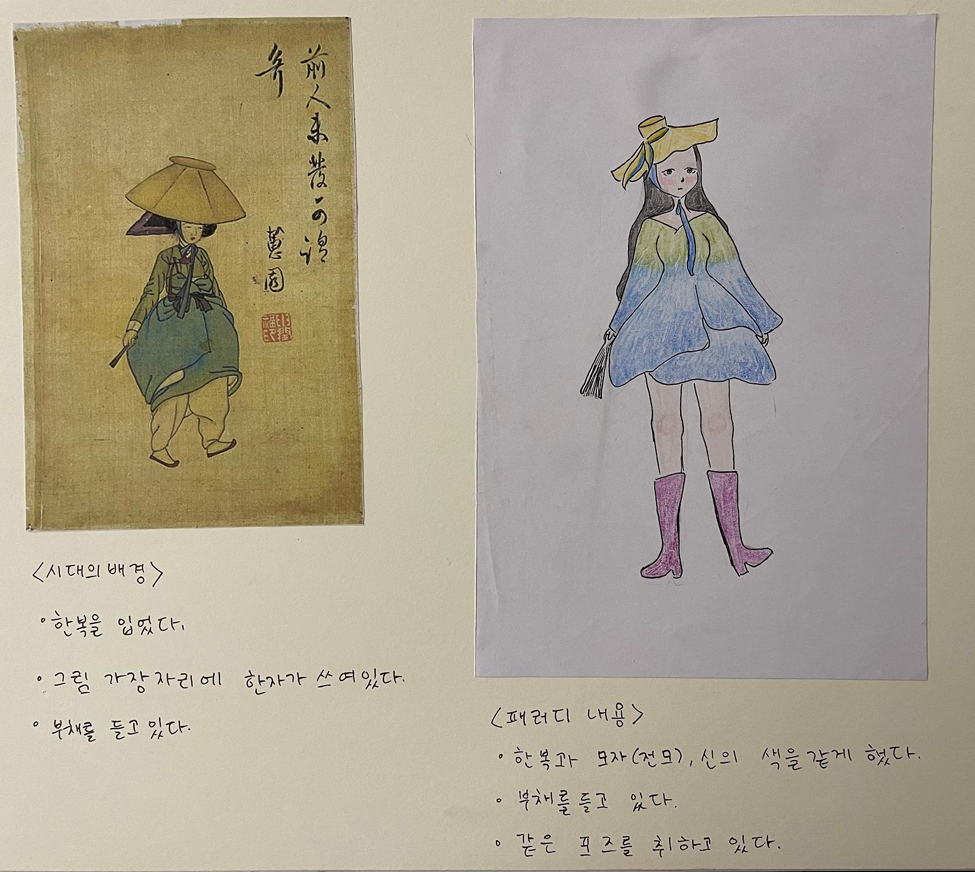 前人未發可謂
奇
蕙園
<시대의 배경>
◦한복을 입었다.
◦그림 가장자리에 한자가 쓰여있다.
◦부채를 들고 있다.
<패러디 내용>
◦한복과 모자(전모), 신의 색을 같게 했다.
◦부채를 들고 있다.
◦같은 포즈를 취하고 있다.